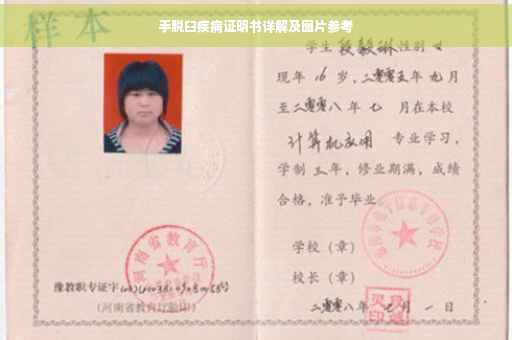 手脱臼疾病证明书详解及图片参考
样本
学生 段毅琳 性别 女
现年 16 岁,二零零五年 九 月
至二零零八年 七 月在本校
计算机应用 专业学习,
学制 三 年,修业期满,成绩
合格,准予毕业
学校(章)
校长(章)
二零零八年 七 月 一 日
河南省教育厅
豫教职专证字
(河南省教育厅验印)